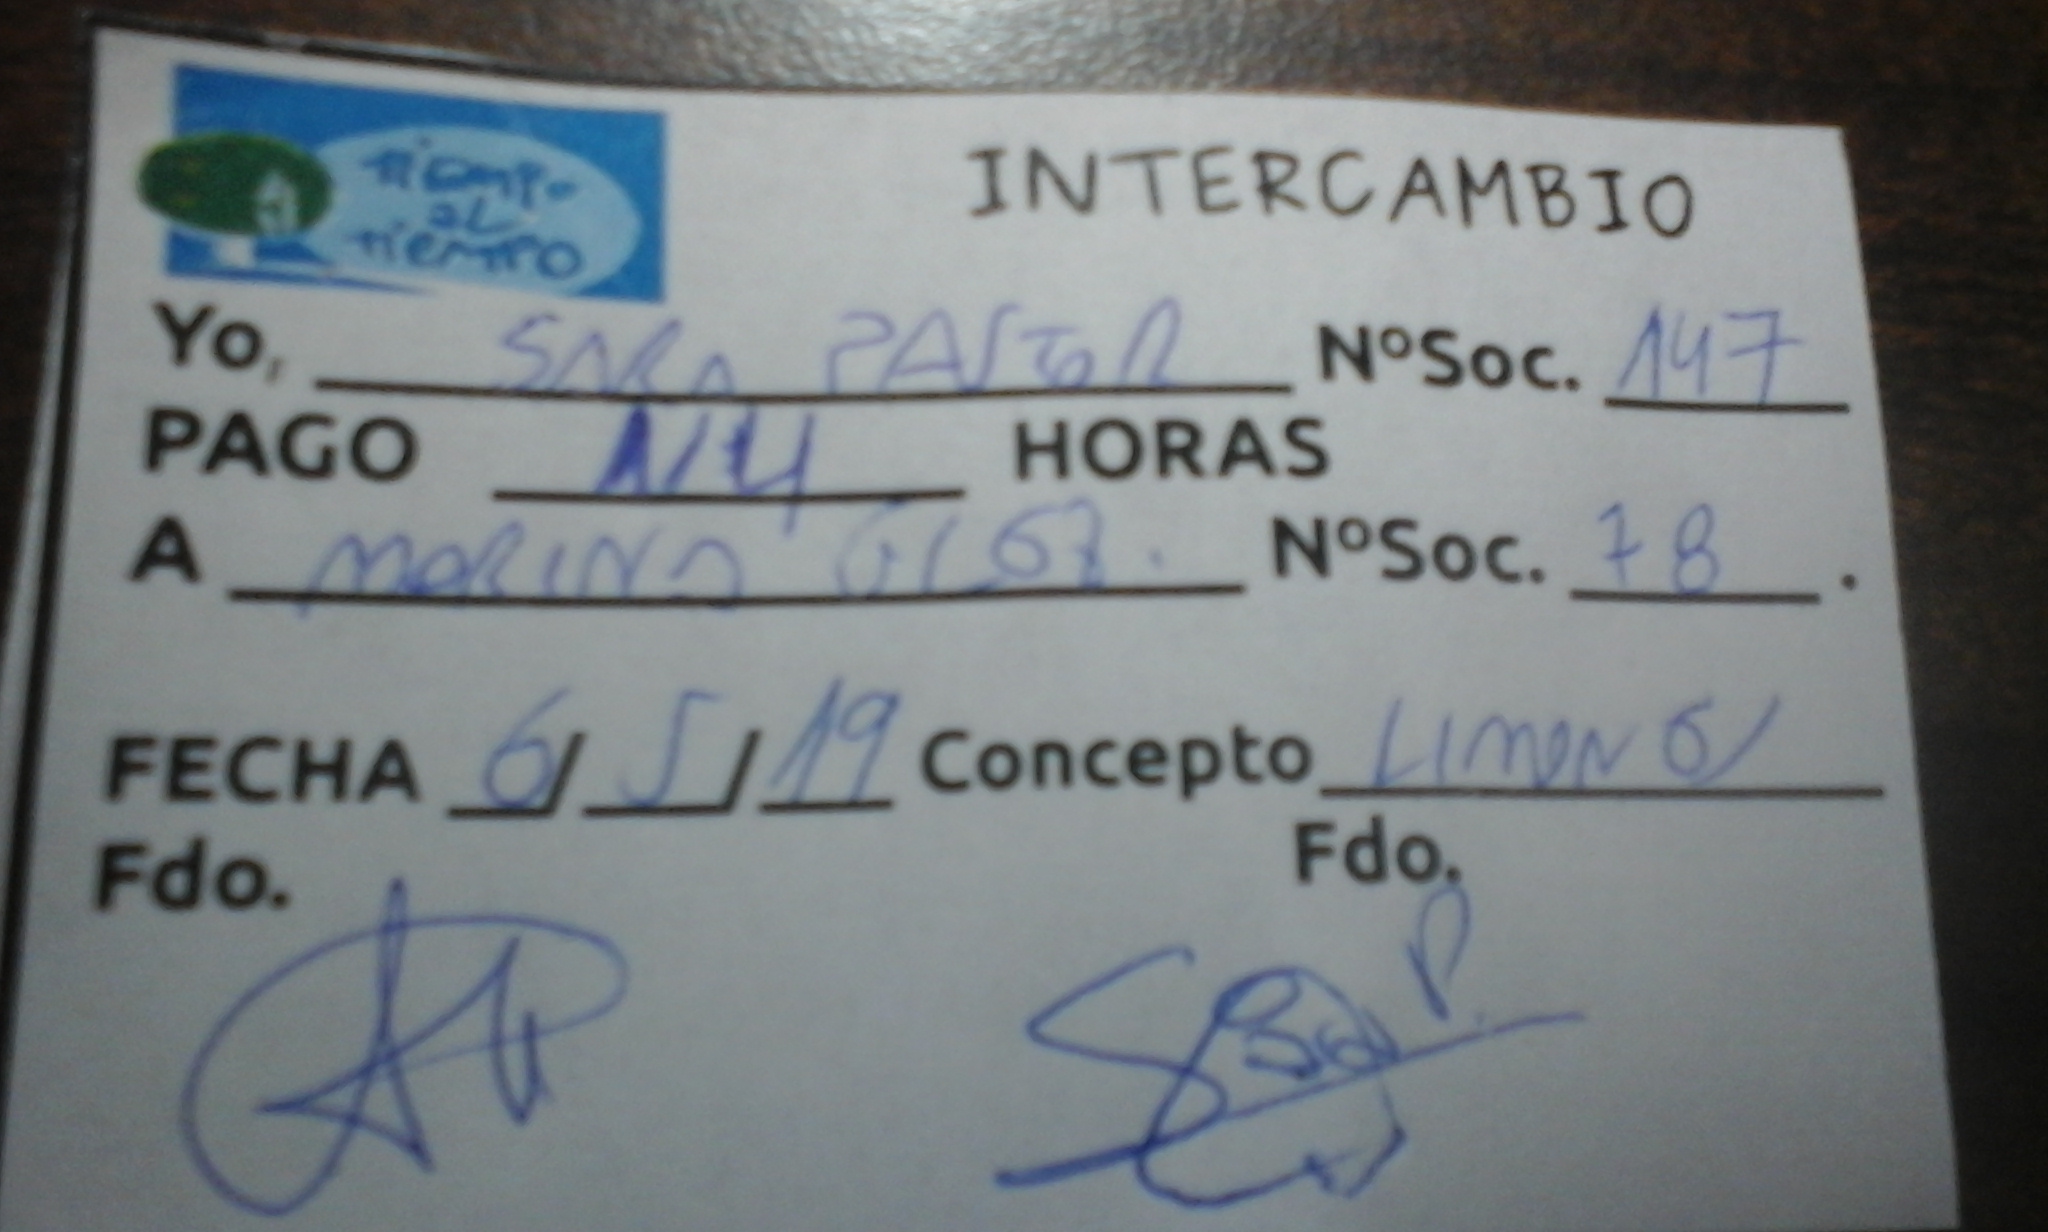 tiempo
al
tiempo
INTERCAMBIO
Yo, SARA PASTOR NºSoc. 147
PAGO 1/4 HORAS
A NºSoc. 78.
FECHA 6/5/19 Concepto LIMONES
Fdo. Fdo.